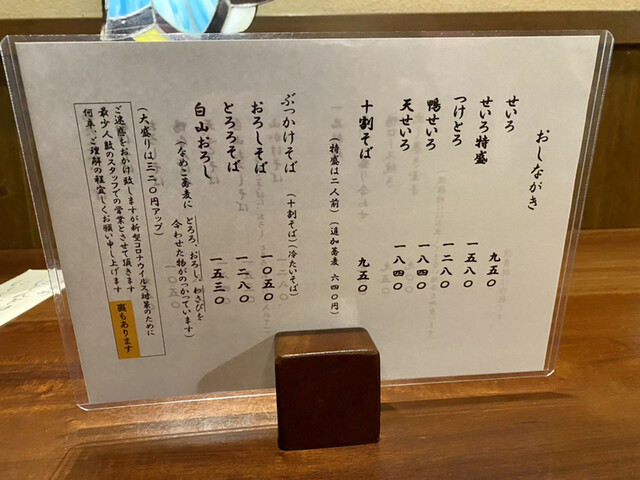 おしながき
せいろ 九五〇
せいろ特盛 一五八〇
つけとろ 一二八〇
鴨せいろ 一八四〇
天せいろ 一八四〇
十割そば 九五〇
(特盛は二人前)(追加蕎麦 六四〇円)
ぶっかけそば (十割そば)(冷たいそば)
おろしそば 一〇五〇
とろろそば 一二八〇
白山おろし 一五三〇
(なめこ蕎麦に とろろ、おろし、わさびを
合わせた物がのっかっています)
(大盛りは三二〇円アップ)
ご迷惑をおかけ致しますが新型コロナウイルス対策のために
最少人数のスタッフでの営業とさせて頂きます
何卒、ご理解の程宜しくお願い申し上げます
裏もあります